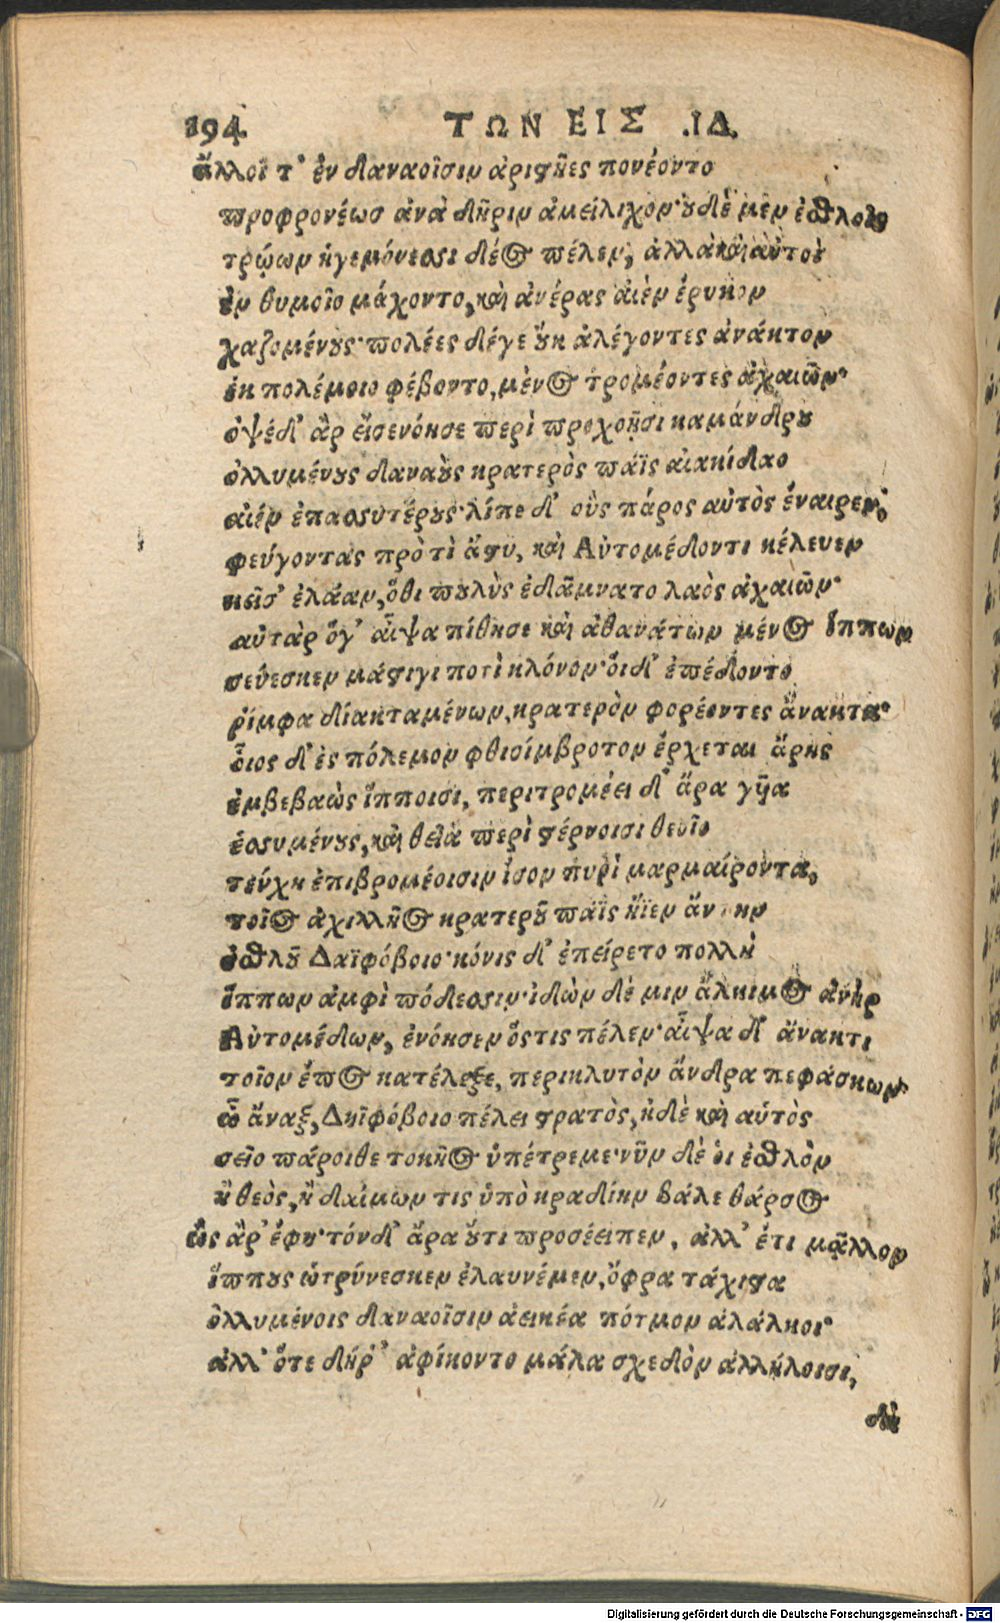 194. ΤΩΝ ΕΙΣ .ΙΔ.
ἄλλοί τ' ἐν δαναοῖσιν ἀριστῆες πονέοντο
προφρονέωσ ἀνὰ δῆριν ἀμείλιχον· οὐδὲ μὲν ἐσθλοῖς
τρώων ἡγεμόνεσσι δέος πέλεν, ἀλλὰ καὶ αὐτοὶ
ἐν θυμοῖο μάχοντο, καὶ ἀνέρας αἰὲν ἔρυκον
χαζομένους· πολέες δέγε οὔκ ἀλέγοντες ἀνάκτον
ἐκ πολέμοιο φέβοντο, μένος τρομέοντες ἀχαιῶν·
ὀψέδ' ἂρ εἴσενόησε περὶ προχοῇσι καμάνδρου
ὀλλυμένους δαναοὺς κρατερὸς πάϊς αἰακίδαο
αἰέν ἐπασσυτέρους· λίπε δ' οὓς πάρος αὐτὸς ἔναιρεν,
φεύγοντας πρὸ τὶ ἄστυ, καὶ Αὐτομέδοντι κέλευεν
κεῖσ' ἐλάαν, ὅθι πουλὺς ἐδάμνατο λαὸς ἀχαιῶν·
αὐτὰρ ὅγ' αἶψα πίθησε καὶ ἀθανάτων μένος ἵππων
σεύεσκεν μάστιγι ποτὶ κλόνον· οἱ δ' ἐπέδοντο
ῥίμφα δίακταμένων, κρατερὸν φορέοντες ἄνακτα·
οἷος δ' ἐς πόλεμον φθισίμβροτον ἔρχεται ἄρης
ἐμβεβαὼς ἵπποισι, περιτρομέει δ' ἄρα γῆα
ἐσσυμένους, καὶ θεῖα περὶ στέρνοισι θεοῖο
τεύχη ἐπιβρομέοισιν ἶσον πυρὶ μαρμαίροντα,
τοῖος ἀχιλλῆος κρατεροῦ πάϊς ἤϊεν ἄντην
ἐσθλοῦ Δαϊφόβοιο· κόνις δ' ἐπείρετο πολλὴ
ἵππων ἀμφὶ πόδεσσιν· ἰδὼν δέ μιν ἄλκιμος ἀνὴρ
Αὐτομέδων, ἐνόησεν ὅστις πέλεν· αἶψα δ' ἄνακτι
τοῖον ἔπος κατέλεξε, περικλυτὸν ἄνδρα πεφάσκων·
ὦ ἄναξ, Δηϊφόβοιο πέλει στρατὸς, ἠδὲ καὶ αὐτὸς
σεῖο πάροιθε τοκῆος ὑπέτρεμε· νῦν δέ οἱ ἐσθλὸν
ἢ θεὸς, ἢ δαίμων τις ὑπὸ κραδίην βάλε θάρσος
ὣς ἂρ' ἔφη· τόνδ' ἄρα οὔτι προσέειπεν, ἀλλ' ἔτι μᾶλλον
ἵππους ὠτρύνεσκεν ἐλαυνέμεν, ὄφρα τάχιστα
ὀλλυμένοις δαναοῖσιν ἀεικέα πότμον ἀλάλκοι·
ἀλλ' ὅτε δήρ' ἀφίκοντο μάλα σχεδὸν ἀλλήλοισι,
δὴ